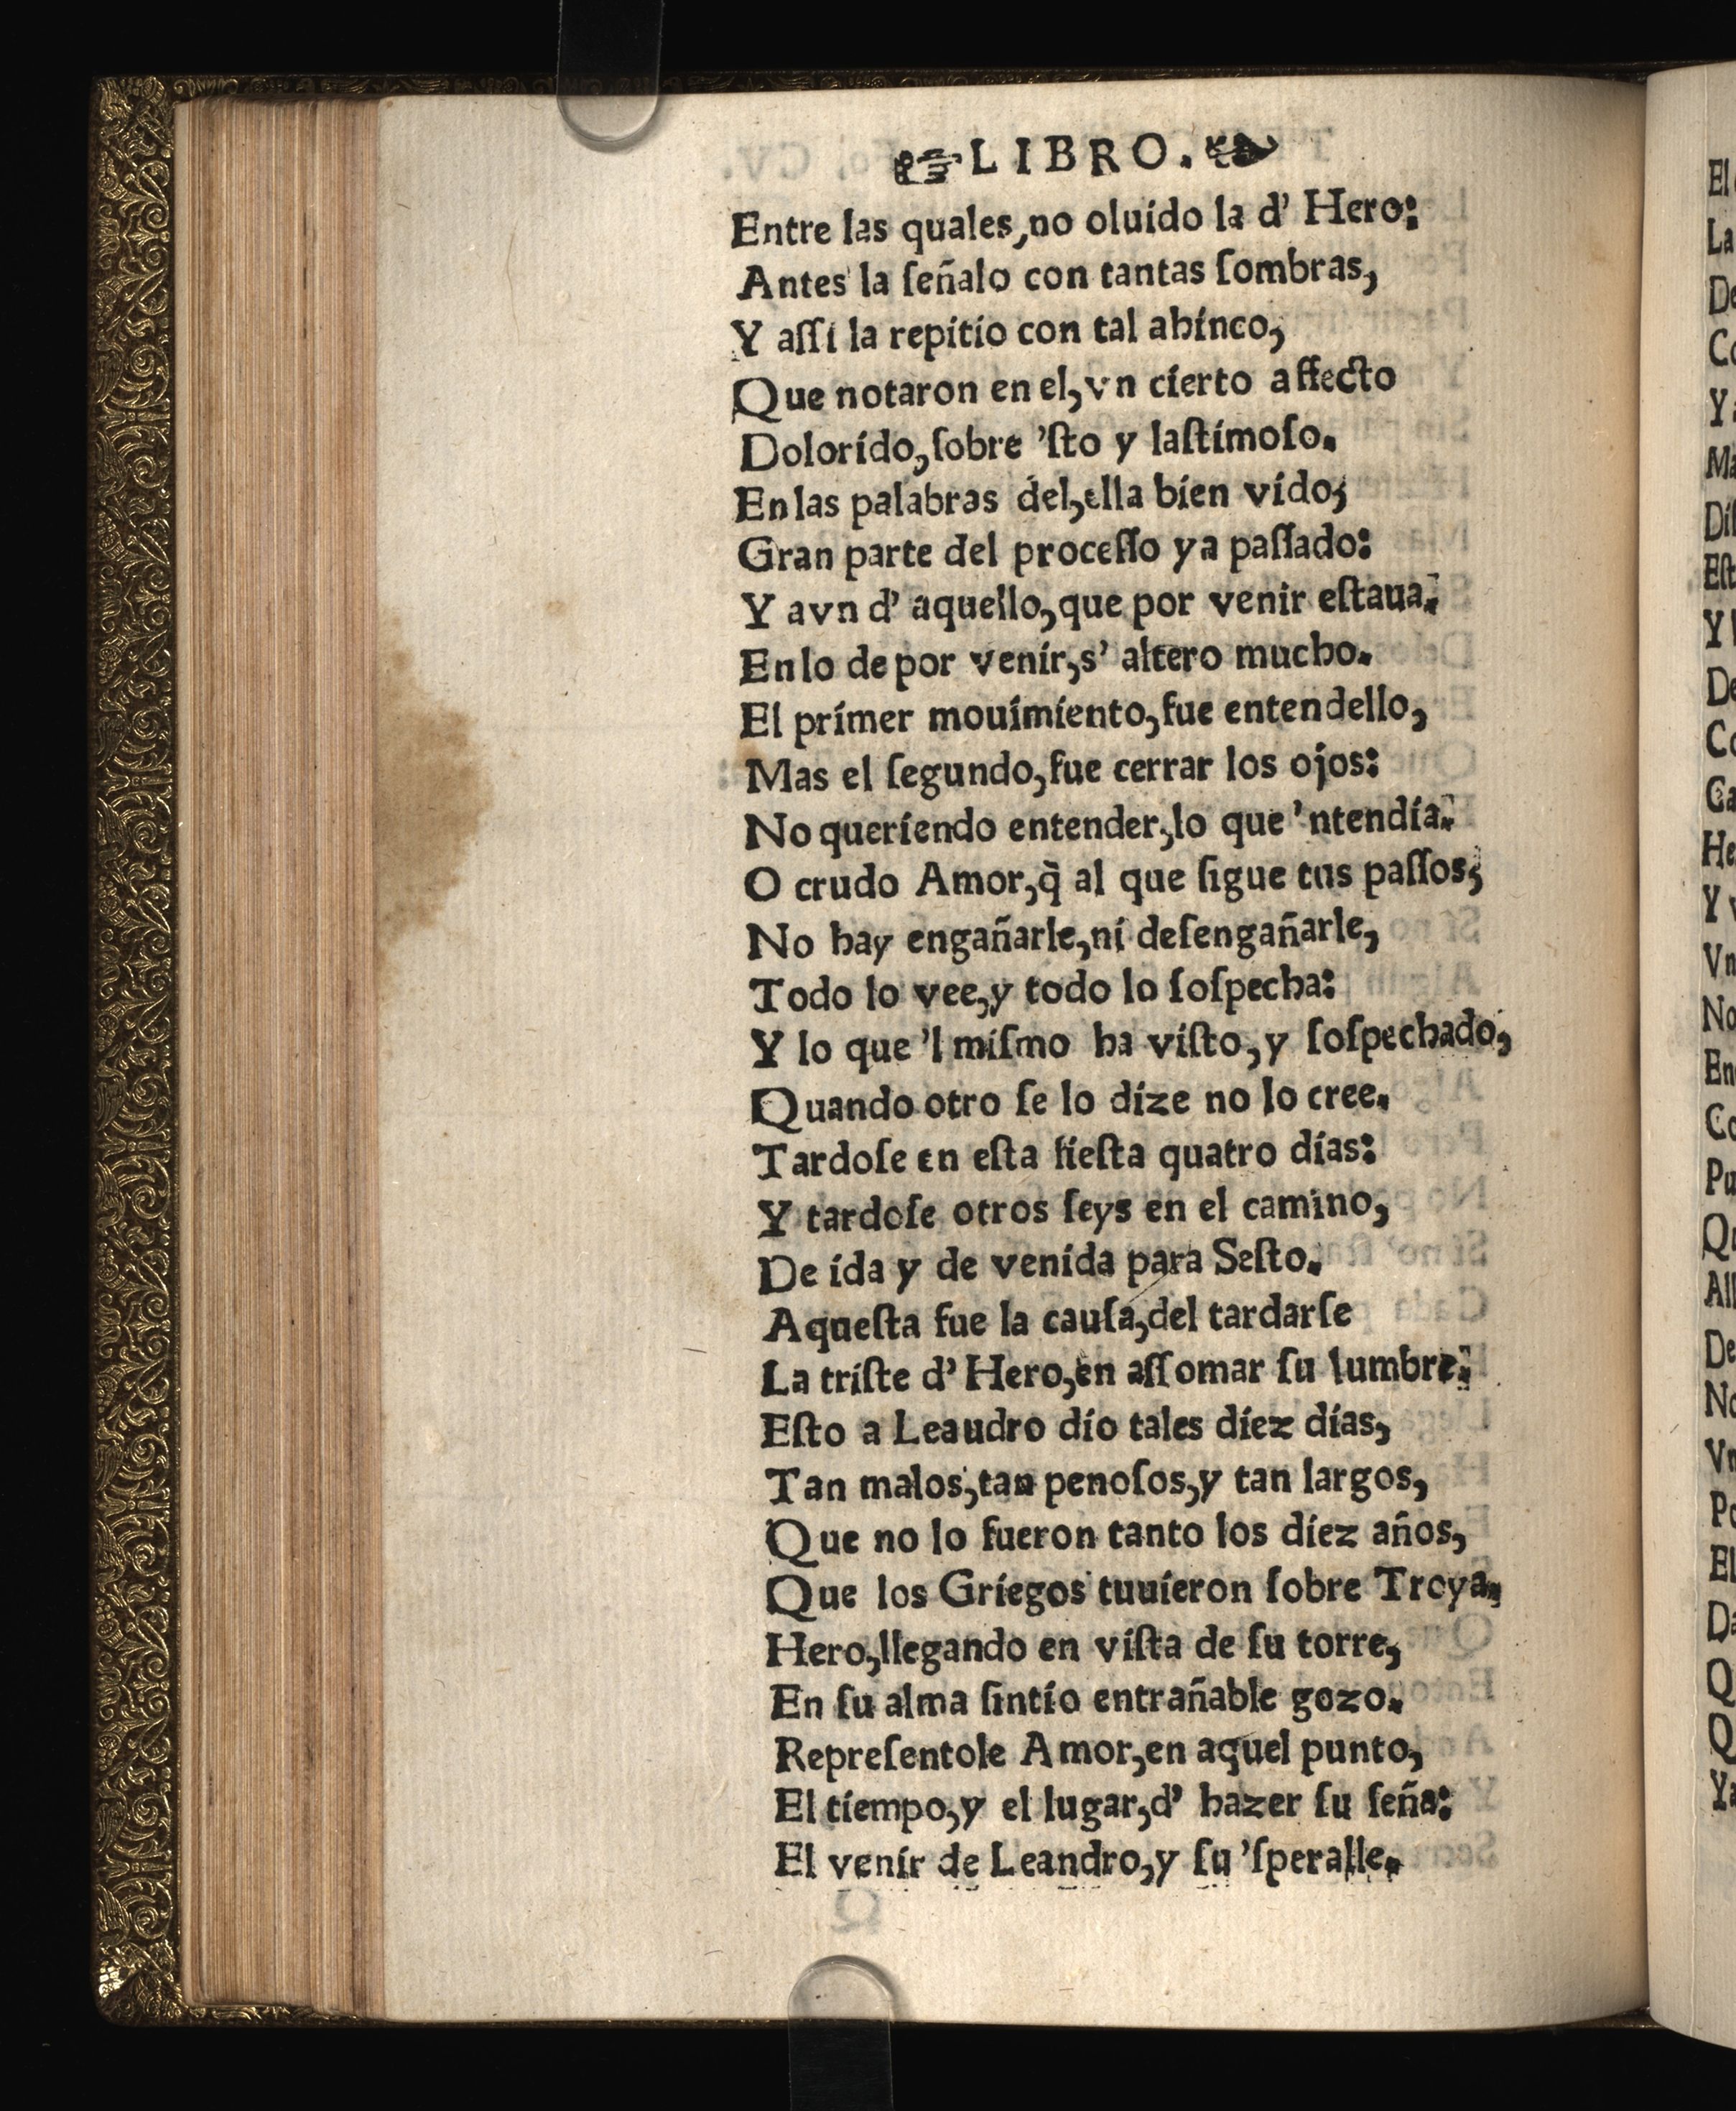 ☞ LIBRO. ❧
Entre las quales, no oluido la d' Hero:
Antes la ſeñalo con tantas ſombras,
Y aſſi la repitio con tal ahinco,
Que notaron en el, vn cierto affecto
Dolorido, ſobre 'ſto y laſtimoſo.
En las palabras del, ella bien vido,
Gran parte del proceſſo ya paſſado:
Y avn d' aquello, que por venir eſtaua.
En lo de por venir, s' altero mucho.
El primer mouimiento, fue entendello,
Mas el ſegundo, fue cerrar los ojos:
No queriendo entender, lo que 'ntendia.
O crudo Amor, q̃ al que ſigue tus paſſos,
No hay engañarle, ni deſengañarle,
Todo lo vee, y todo lo ſoſpecha:
Y lo que 'l miſmo ha viſto, y ſoſpechado,
Quando otro ſe lo dize no lo cree.
Tardoſe en eſta fieſta quatro dias:
Y tardoſe otros ſeys en el camino,
De ida y de venida para Seſto.
Aqueſta fue la cauſa, del tardarſe
La triſte d' Hero, en aſſomar ſu lumbre.
Eſto a Leaudro dio tales diez dias,
Tan malos, tan penoſos, y tan largos,
Que no lo fueron tanto los diez años,
Que los Griegos tuuieron ſobre Troya.
Hero, llegando en viſta de ſu torre,
En ſu alma ſintio entrañable gozo.
Repreſentole Amor, en aquel punto,
El tiempo, y el lugar, d' hazer ſu ſeña:
El venir de Leandro, y ſu 'ſperalle.